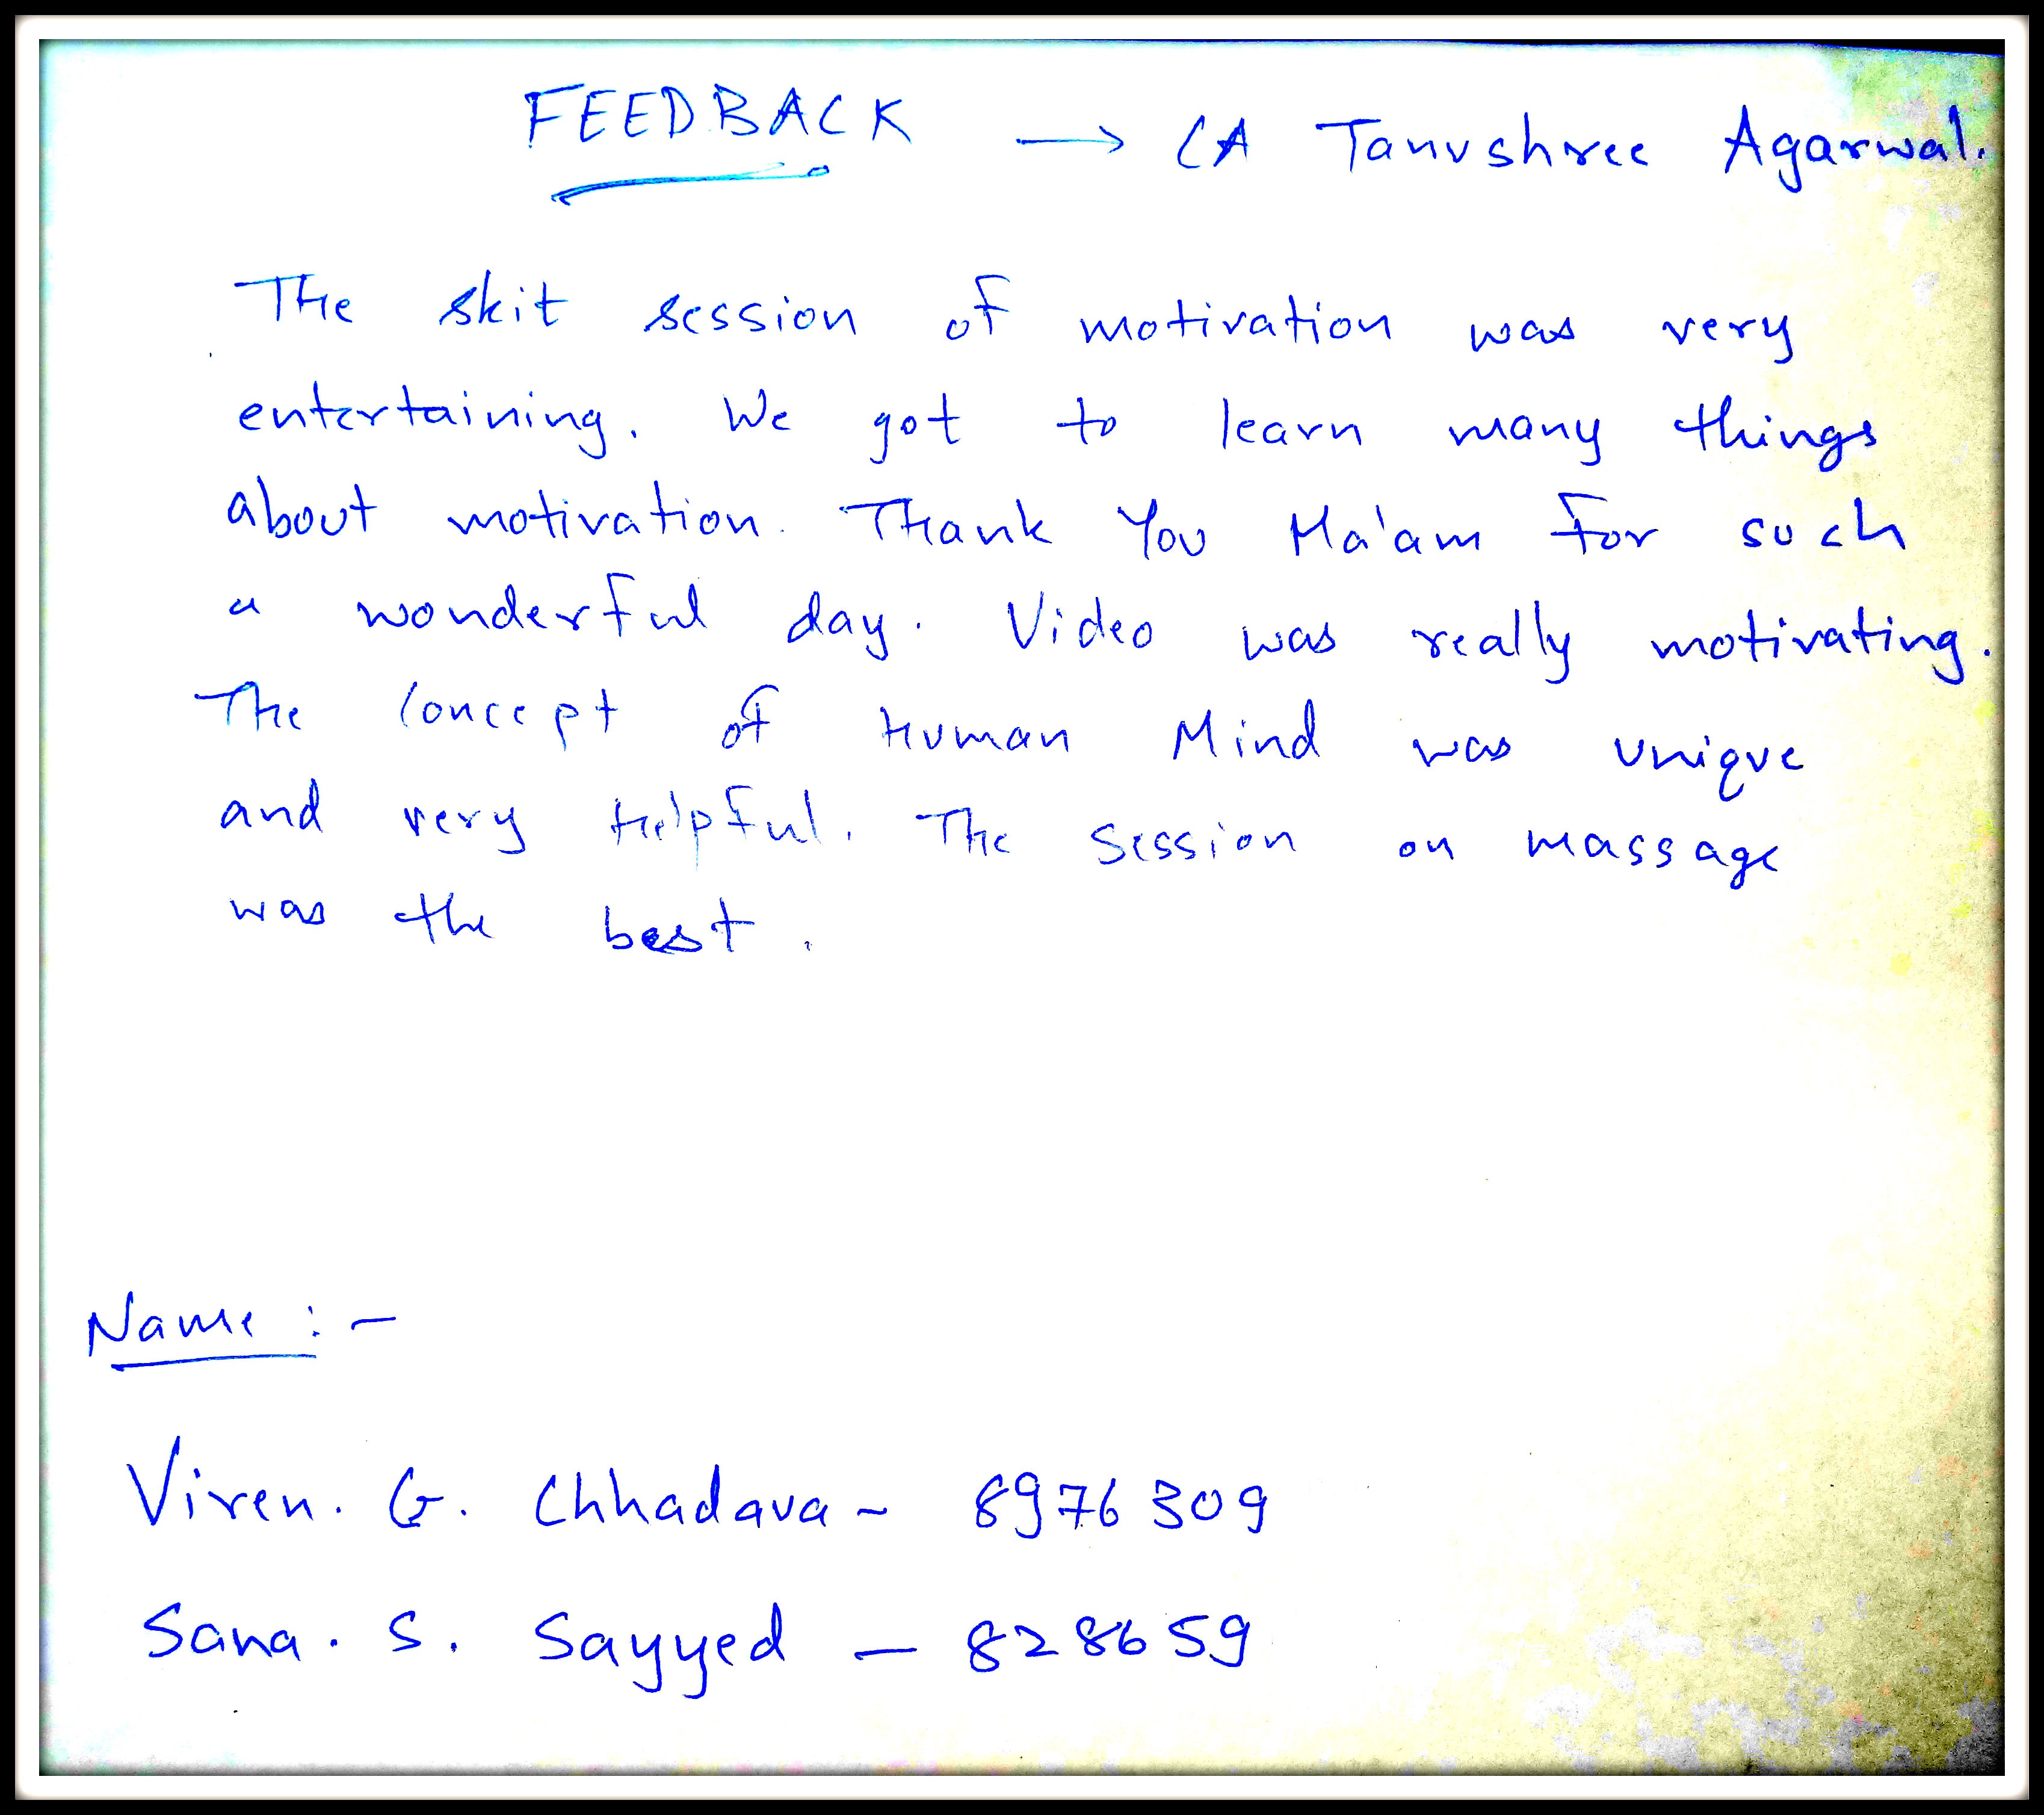 FEEDBACK → CA Tanushree Agarwal.
The skit session of motivation was very
entertaining. We got to learn many things
about motivation. Thank You Ma'am For such
a wonderful day. Video was really motivating.
The Concept of Human Mind was unique
and very Helpful. The Session on massage
was the best.
Name :-
Viren. G. Chhadava - 8976309
Sana. S. Sayyed - 828659